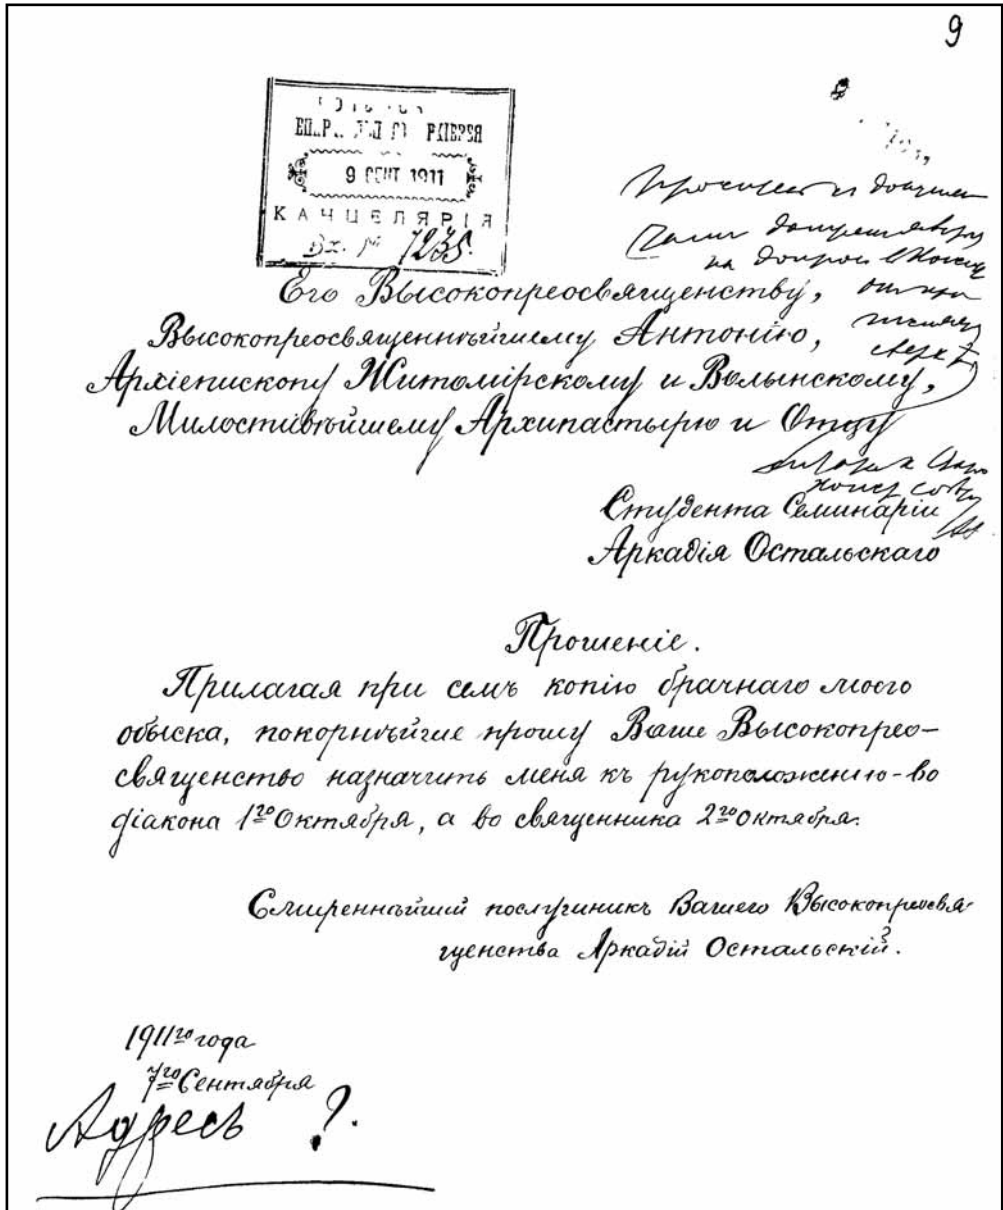 9
9 СЕНТ 1911
КАНЦЕЛЯРІЯ
Вх. № 7235.
Его Высокопреосвященству,
Высокопреосвященнѣйшему Антонію,
Архіепископу Житомірскому и Волынскому,
Милостивѣйшему Архипастырю и Отцу
Студента Семинаріи
Аркадія Остальскаго
Прошеніе.
Прилагая при семъ копію брачнаго моего
обыска, покорнѣйше прошу Ваше Высокопрео-
священство назначить меня къ рукоположенію-во
діакона 1го Октября, а во священника 2го Октября.
Смиреннѣйшій послушникъ Вашего Высокопреосвя-
щенства Аркадій Остальскій.
1911го года
7го Сентября
Адресъ ?.